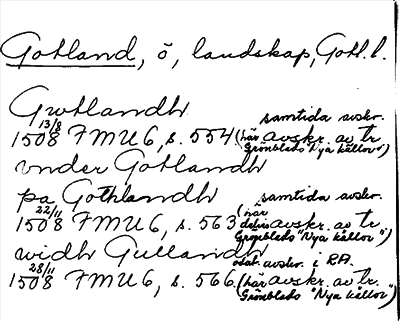 Gotland, ö, landskap, Gotl. l.
Gwtlandh
13/8 samtida avskr.
1508 FMU 6, s. 554 (här avskr. av tr. Grönblads "Nya källor")
vnder Gotlandh
pa Gothlandh
22/11 samtida avskr.
1508 FMU 6, s. 563 (här delvis avskr. av tr. Grönblads "Nya källor")
widh Gullandh
28/11 odat. avskr. i RA.
1508 FMU 6, s. 566 (här avskr. av tr. Grönblads "Nya källor")